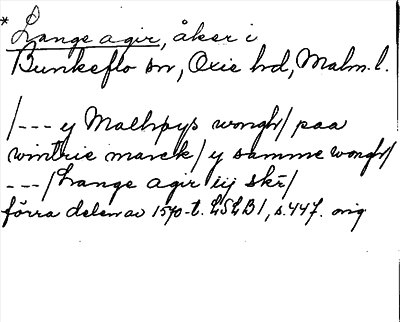 * Lange agir, åker i
Bunkeflo sn, Oxie hd, Malm. l.
/--- y Malhpys wongh/ paa
wintrie marck/ y samme wongh/
---/Lange agir iij skr/
förra delen av 1570-t. LSLB1, s. 447. orig